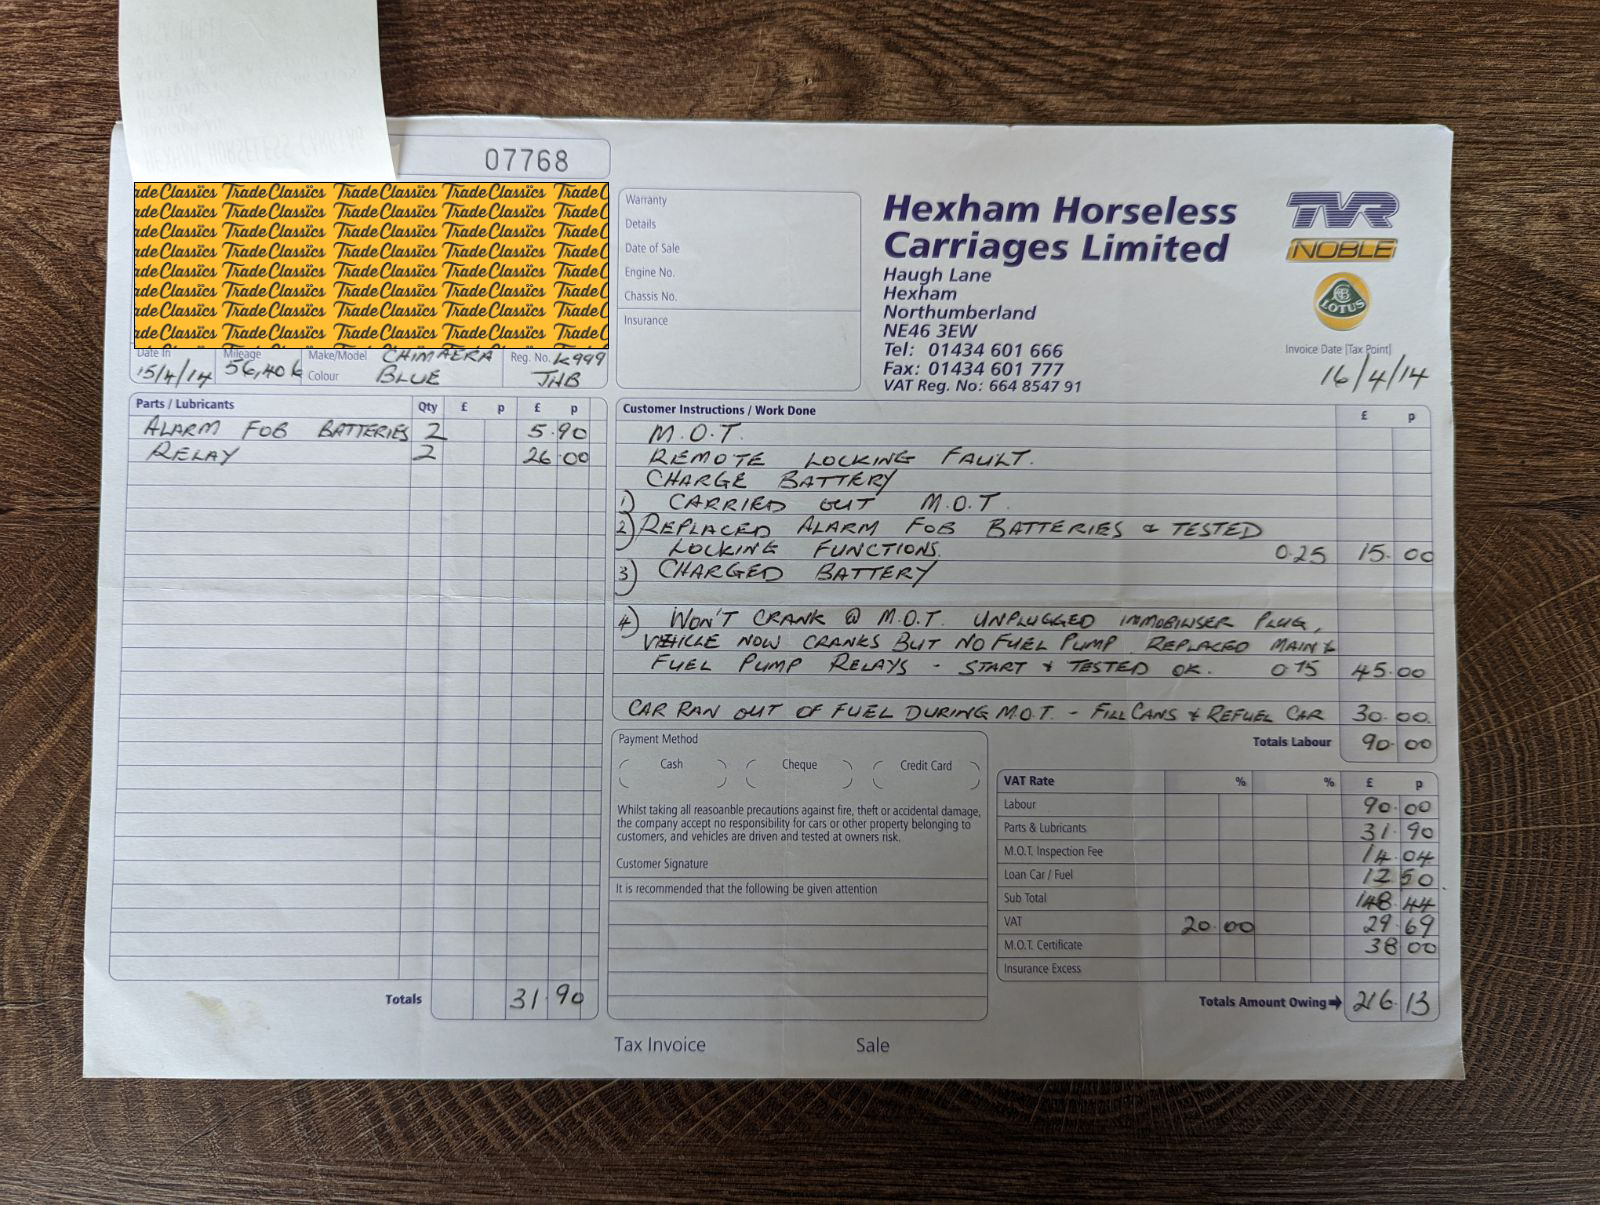 07768
Trade Classics Trade Classics Trade Classics Trade Classics
Date In 15/4/14 Mileage 56,406 Make/Model CHIMAERA Colour BLUE Reg. No. K999 JHB
Warranty
Details
Date of Sale
Engine No.
Chassis No.
Insurance
Hexham Horseless
Carriages Limited
Haugh Lane
Hexham
Northumberland
NE46 3EW
Tel: 01434 601 666
Fax: 01434 601 777
VAT Reg. No: 664 8547 91
TVR
NOBLE
LOTUS
Invoice Date [Tax Point]
16/4/14
Parts / Lubricants Qty £ p £ p
ALARM FOB BATTERIES 2 5.90
RELAY 2 26 00
Totals 31.90
Customer Instructions / Work Done £ p
M.O.T.
REMOTE LOCKING FAULT.
CHARGE BATTERY
1) CARRIED OUT M.O.T.
2) REPLACED ALARM FOB BATTERIES & TESTED
LOCKING FUNCTIONS. 0.25 15.00
3) CHARGED BATTERY
4) WON'T CRANK @ M.O.T. UNPLUGGED IMMOBILISER PLUG,
VEHICLE NOW CRANKS BUT NO FUEL PUMP. REPLACED MAIN &
FUEL PUMP RELAYS - START & TESTED OK. 0.75 45.00
CAR RAN OUT OF FUEL DURING M.O.T. - FILL CANS & REFUEL CAR 30.00
Totals Labour 90.00
Payment Method
Cash Cheque Credit Card
Whilst taking all reasoanble precautions against fire, theft or accidental damage,
the company accept no responsibility for cars or other property belonging to
customers, and vehicles are driven and tested at owners risk.
Customer Signature
It is recommended that the following be given attention
VAT Rate % % £ p
Labour 90.00
Parts & Lubricants 31.90
M.O.T. Inspection Fee 14.04
Loan Car / Fuel 12 50
Sub Total 148 44
VAT 20.00 29.69
M.O.T. Certificate 38 00
Insurance Excess
Totals Amount Owing 216.13
Tax Invoice Sale